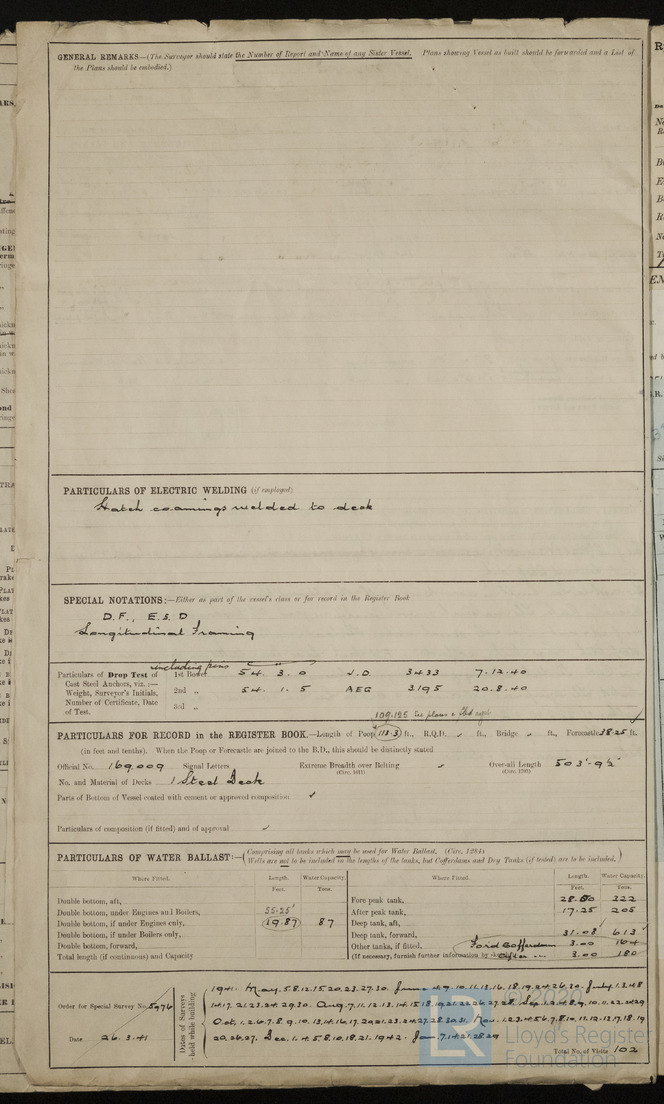 GENERAL REMARKS—(The Surveyor should state the Number of Report and Name of any Sister Vessel. Plans showing Vessel as built should be forwarded and a List of
the Plans should be embodied.)
PARTICULARS OF ELECTRIC WELDING (if employed)
Hatch coamings welded to deck
SPECIAL NOTATIONS:—Either as part of the vessel's class or for record in the Register Book
D.F., E.S.D
Longitudinal Framing
including pins
Particulars of Drop Test of 1st Bower 54. 3. 0 J.D. 3433 7.12.40
Cast Steel Anchors, viz.:—
Weight, Surveyor's Initials, 2nd „ 54. 1. 5 AEG 3195 20.8.40
Number of Certificate, Date
of Test. 3rd „
109.125 See plans &
PARTICULARS FOR RECORD in the REGISTER BOOK.—Length of Poop 113.3 ft., R.Q.D. ft., Bridge ft., Forecastle 38.25 ft.
(in feet and tenths). When the Poop or Forecastle are joined to the B.D., this should be distinctly stated
Official No. 169,009 Signal Letters Extreme Breadth over Belting Over-all Length 503'-9½"
(Circ. 1611) (Circ. 1703)
No. and Material of Decks 1 Steel Deck
Parts of Bottom of Vessel coated with cement or approved composition ✓
Particulars of composition (if fitted) and of approval ✓
PARTICULARS OF WATER BALLAST:—(Comprising all tanks which may be used for Water Ballast, (Circ. 1284)
Wells are not to be included in the lengths of the tanks, but Cofferdams and Dry Tanks (if tested) are to be included.)
Where Fitted. Length. Water Capacity. Where Fitted. Length. Water Capacity.
Feet. Tons. Feet. Tons.
Double bottom, aft, Fore peak tank, 28.80 322
Double bottom, under Engines and Boilers, 55.25' After peak tank, 17.25 205
Double bottom, if under Engines only, 19.87 87 Deep tank, aft,
Double bottom, if under Boilers only, Deep tank, forward, 31.08 613
Double bottom, forward, Other tanks, if fitted, Ford Cofferdam 3.00 164
Total length (if continuous) and Capacity (If necessary, furnish further information by 3.00 180
Order for Special Survey No. 5976
Date 26.3.41
Dates of Surveys held while building
1941. May. 5.8.12.15.20.23.27.30. June
Oct. 1.2.6.7.8.9.10.13.14.16.17.20.21.23.24.27.28.30.31. Nov.
20.26.27. Dec. 1.4.5.8.10.18.21. 1942. Jan. 7.14.21.28.29
Total No. of Visits 102
Lloyd's Register
Foundation